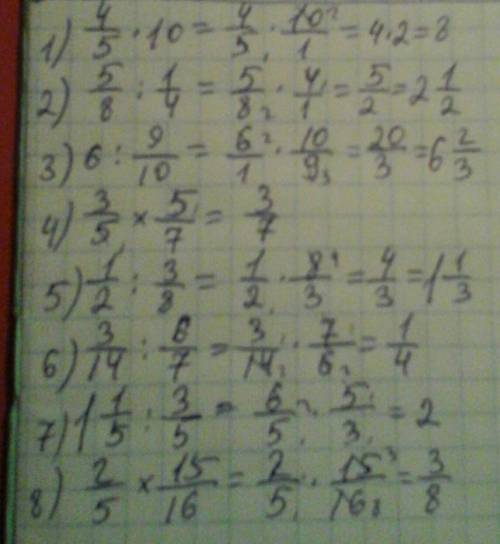 1) 4/5 · 10 = 4/5₁ · 10²/1 = 4·2 = 8
2) 5/8 : 1/4 = 5/8₂ · 4¹/1 = 5/2 = 2 1/2
3) 6 : 9/10 = 6²/1 · 10/9₃ = 20/3 = 6 2/3
4) 3/5 × 5/7 = 3/7
5) 1/2 : 3/8 = 1/2₁ · 8⁴/3 = 4/3 = 1 1/3
6) 3/14 : 6/7 = 3¹/14₂ · 7¹/6₂ = 1/4
7) 1 1/5 : 3/5 = 6²/5₁ · 5¹/3₁ = 2
8) 2/5 × 15/16 = 2/5₁ · 15³/16₈ = 3/8